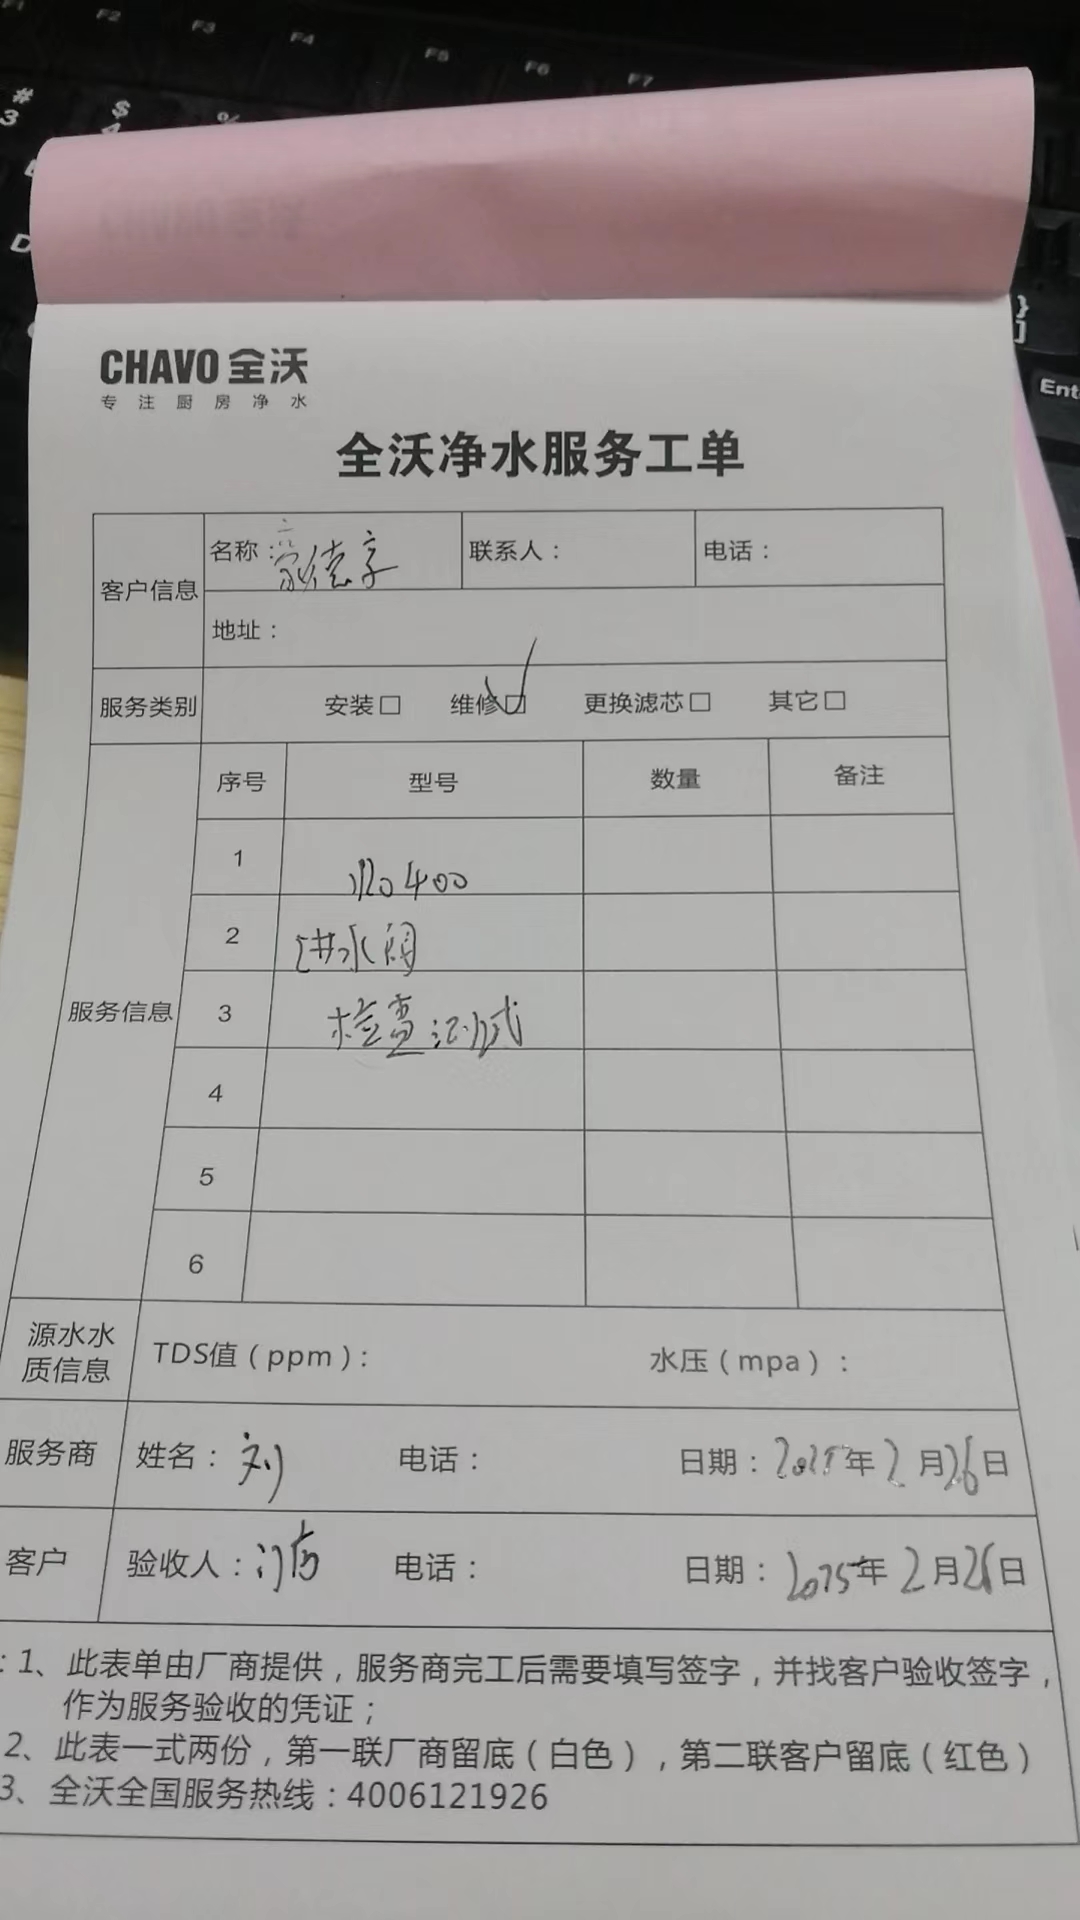 F1 F2 F3 F4 F5 F6 F7
# 3 $ 4 %
D
} ]
Ent
CHAVO 全沃
专注厨房净水
全沃净水服务工单
客户信息 名称：豪德亨 联系人： 电话：
地址：
服务类别 安装□ 维修☑ 更换滤芯□ 其它□
服务信息 序号 型号 数量 备注
1 400
2 进水阀
3 检查测试
4
5
6
源水水质信息 TDS值（ppm）： 水压（mpa）：
服务商 姓名：刘 电话： 日期：2025年2月26日
客户 验收人： 电话： 日期：2025年2月26日
：1、此表单由厂商提供，服务商完工后需要填写签字，并找客户验收签字，
作为服务验收的凭证；
2、此表一式两份，第一联厂商留底（白色），第二联客户留底（红色）
3、全沃全国服务热线：4006121926